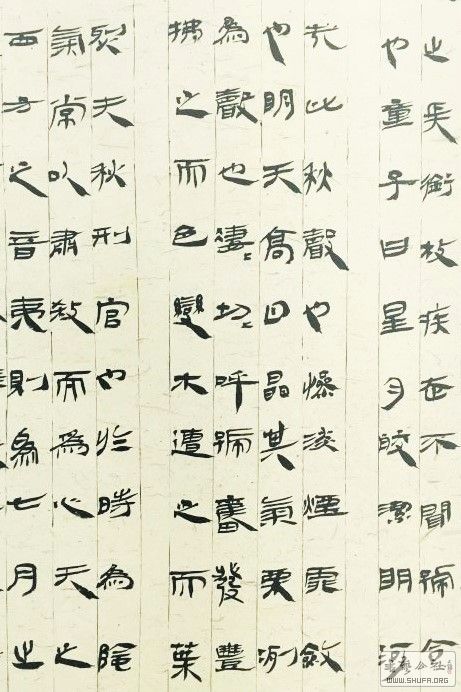 之兵銜枚疾走不聞號令
也童子曰星月皎潔明河
哉此秋聲也慘淡煙霏斂
也明天高日晶其氣栗冽
為聲也淒〻切〻呼號奮發豐
拂之而色變木遭之而葉
烈夫秋刑官也於時為陰
氣常以肅殺而為心天之
西方之音夷則為七月之
WWW.SHUFA.ORG